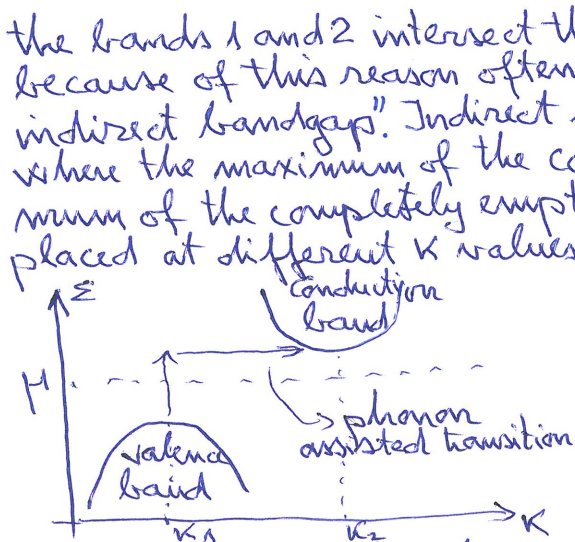 the bands 1 and 2 intersect th
because of this reason often
indirect bandgap". Indirect
where the maximum of the co
mum of the completely empt
placed at different K values
Σ
conduction
band
μ
phonon
assisted transition
valence
band
K1
K2
K